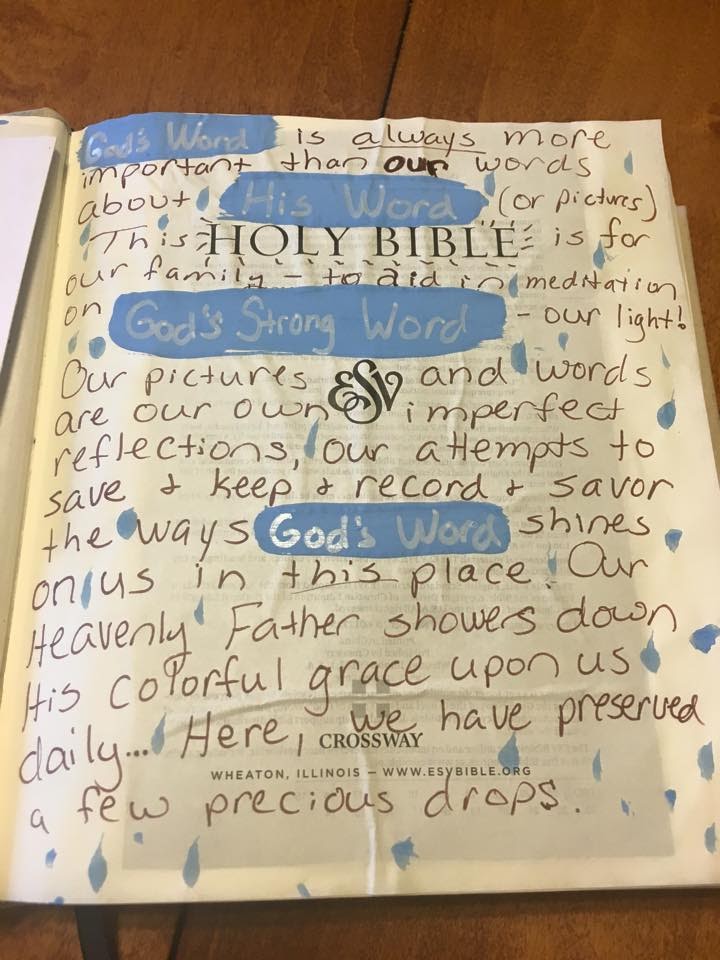 God's Word is always more
important than our words
about His Word (or pictures)
This HOLY BIBLE is for
our family - to aid in meditation
on God's Strong Word - our light!
Our pictures ESV and words
are our own imperfect
reflections, our attempts to
save & keep & record & savor
the ways God's Word shines
on us in this place. Our
Heavenly Father showers down
His colorful grace upon us
daily... Here, we have preserved
CROSSWAY
WHEATON, ILLINOIS — WWW.ESVBIBLE.ORG
a few precious drops.